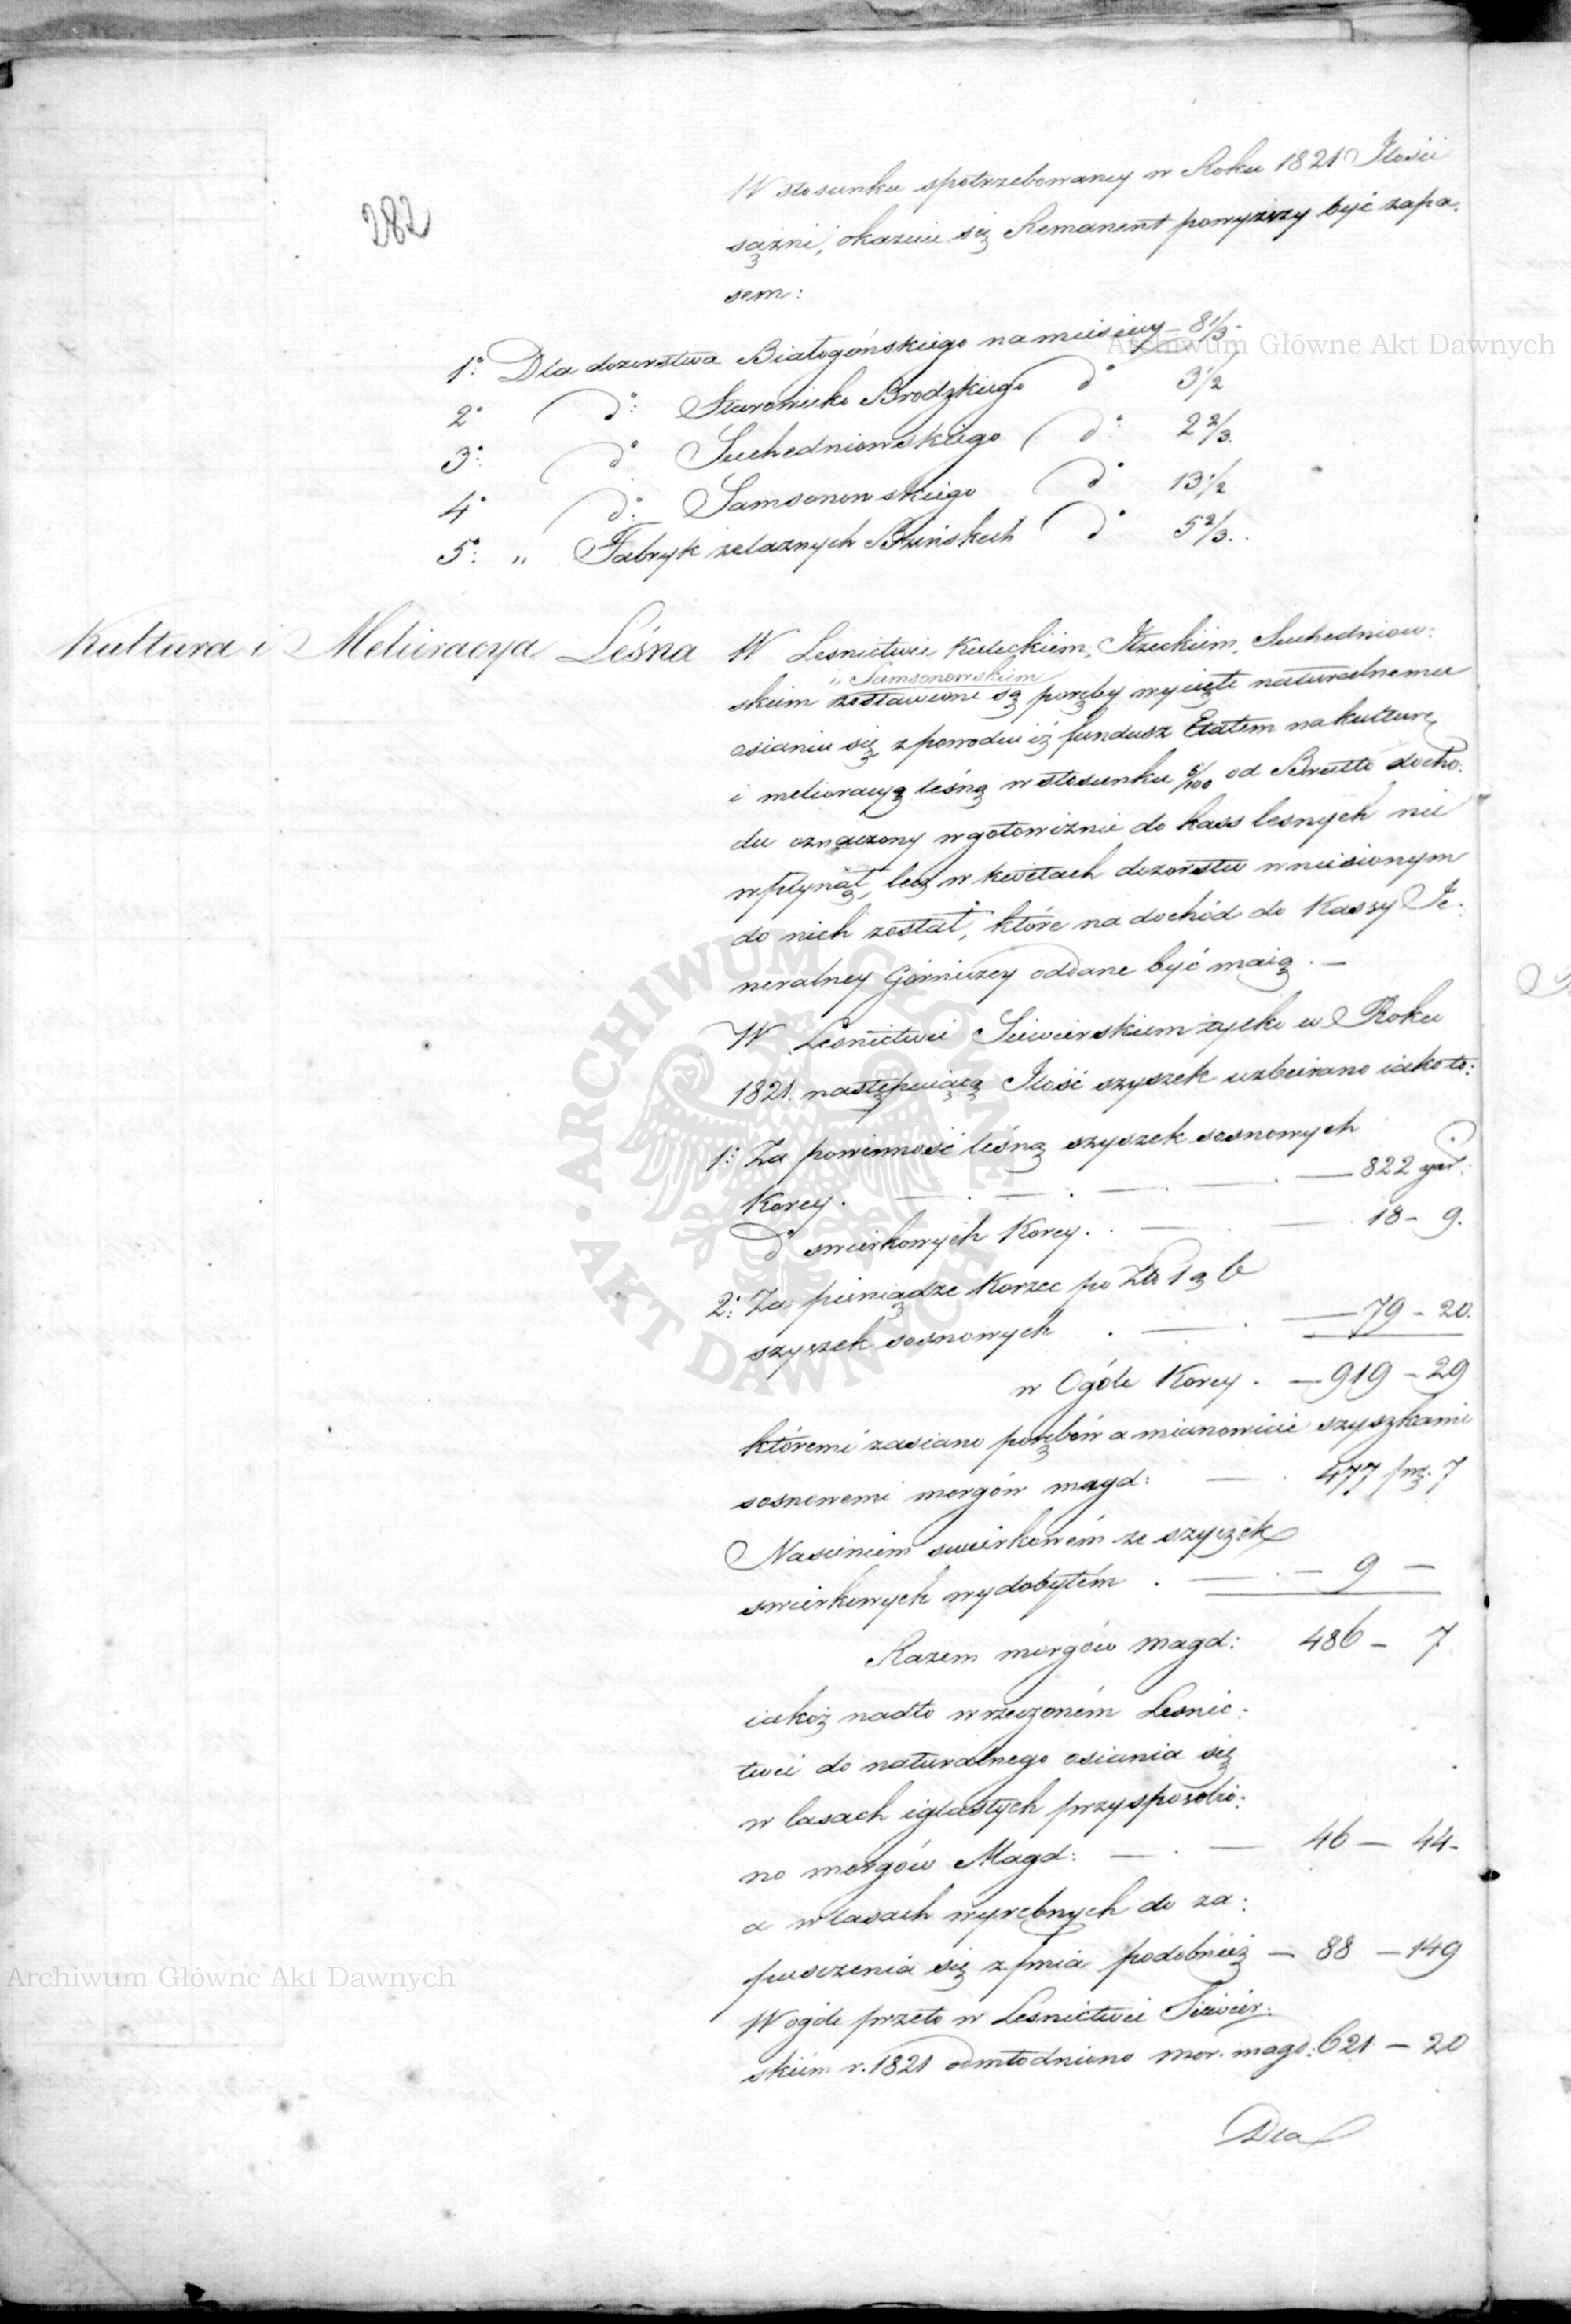 282
W stosunku spotrzebowaney w Roku 1821 Ilości
sążni, okazuie się Remanent powyższy być zapa:
sem:
1° Dla dozorstwa Białogońskiego na miesięcy – 8 1/3 –
2° d° Starowicko Brodzkiego d° 3 1/2
3° d° Suchedniowskiego d° 2 2/3.
4° d° Samsonowskiego d° 13 1/2
5° „ Fabryk żelaznych Bzińskich d° 5 2/3.
Kultura i Melioracya Leśna
W Lesnictwie Kieleckiem, Iłzeckiem, Suchedniow:
„ Samsonowskiem
skiem zostawione są poręby wycięte naturalnemu
osianiu się, z powodu iż fundusz Etatem na kulturę
i melioracyą leśną w stosunku 5/100 od Brutto docho:
du oznaczony w gotowiznie do kass lesnych nie
wpłynął, lecz w kwitach dozorstw wniesionym
do nich został, które na dochód do Kassy Je:
neralney Górniczey oddane być maią. —
W Leśnictwie Siewierskiem tylko w Roku
1821. następuiącą Ilość szyszek uzbierano iako to:
1° Za powinność leśną szyszek sosnowych
Korcy. — . — . — . — 822 gar:
d° swierkowych Korcy. . — . — . 18 – 9.
2° Za pieniądze Korzec po Złt 1 g 6
szyszek sosnowych . — . — 79 – 20.
w Ogóle Korcy . — 919 – 29
któremi zasiano porębów a mianowicie szyszkami
sosnowemi morgów magd: — . 477 prę. 7
Nasieniem swierkowém ze szyszek
swierkowych wydobytém . — . – 9 –
Razem morgów magd: 486 – 7
iakoż nadto w rzeczoném Lesnic:
twie do naturalnego osiania się
w lasach iglastych przysposobio:
no morgów Magd: — . — 46 — 44 –
a w lasach wyrębnych do za:
puszczenia się z pnia podobnież — 88 — 149
W ogóle przeto w Lesnictwie Siewier:
skiém r. 1821 odmłodniono mor. magd: 621 — 20
Dla
Archiwum Główne Akt Dawnych
Archiwum Główne Akt Dawnych
ARCHIWUM GŁÓWNE AKT DAWNYCH